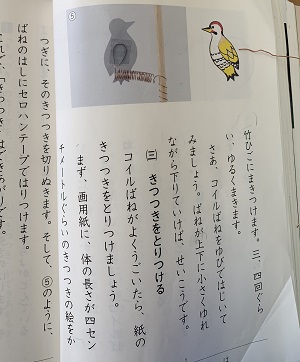 ⑤
竹ひごにまきつけます。三、四回ぐら
い、ゆるくまきます。
さあ、コイルばねをゆびではじいて
みましょう。ばねが上下に小さくゆれ
ながら下りていけば、せいこうです。
㈢ きつつきをとりつける
コイルばねがよくうごいたら、紙の
きつつきをとりつけましょう。
まず、画用紙に、体の長さが四セン
チメートルぐらいのきつつきの絵をか
つぎに、そのきつつきを切りぬきます。そして、⑤のように、
ばねのはしにセロハンテープではりつけます。
これで、「きつつき」はできあがりです。